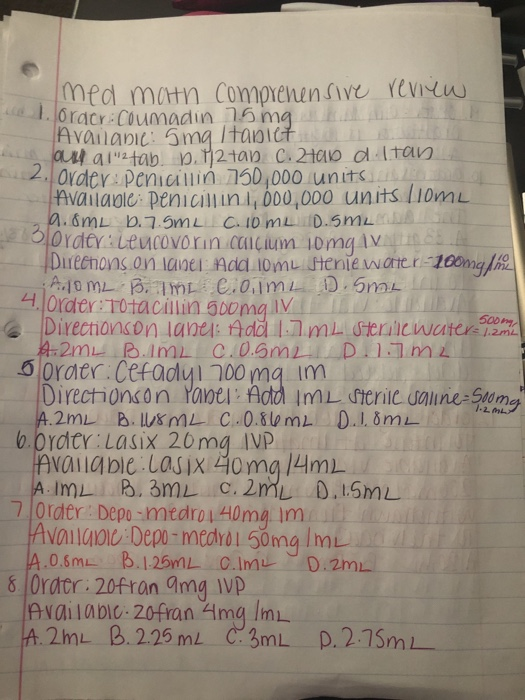 med math comprehensive review
1. Order: Coumadin 7.5 mg
Available: 5mg /tablet
a 1 1/2 tab b. 1/2 tab c. 2 tab d. 1 tab
2. Order: penicillin 750,000 units
Available: penicillin 1,000,000 units /10mL
a. 8mL b. 7.5mL c. 10 mL D. 5mL
3. Order: Leucovorin calcium 10mg IV
Directions on label: Add 10mL sterile water = 100mg/10 mL
A. 10 mL B. 1mL C. 0.1mL D. 5mL
4. Order: Totacillin 500mg IV
Directions on label: Add 1.7mL sterile water = 500mg/1.2mL
A. 2mL B. 1mL C. 0.5mL D. 1.7mL
5 Order: Cefadyl 700 mg IM
Directions on label: Add 1mL sterile saline = 500mg
1.2 mL
A. 2mL B. 1.68mL C. 0.86mL D. 1.8mL
6. Order: Lasix 20mg IVP
Available: Lasix 40mg /4mL
A. 1mL B. 3mL C. 2mL D. 1.5mL
7. Order: Depo-medrol 40mg Im
Available: Depo-medrol 50mg /mL
A. 0.8mL B. 1.25mL C. 1mL D. 2mL
8. Order: Zofran 9mg IVP
Available: Zofran 4mg /mL
A. 2mL B. 2.25 mL C. 3mL D. 2.75mL